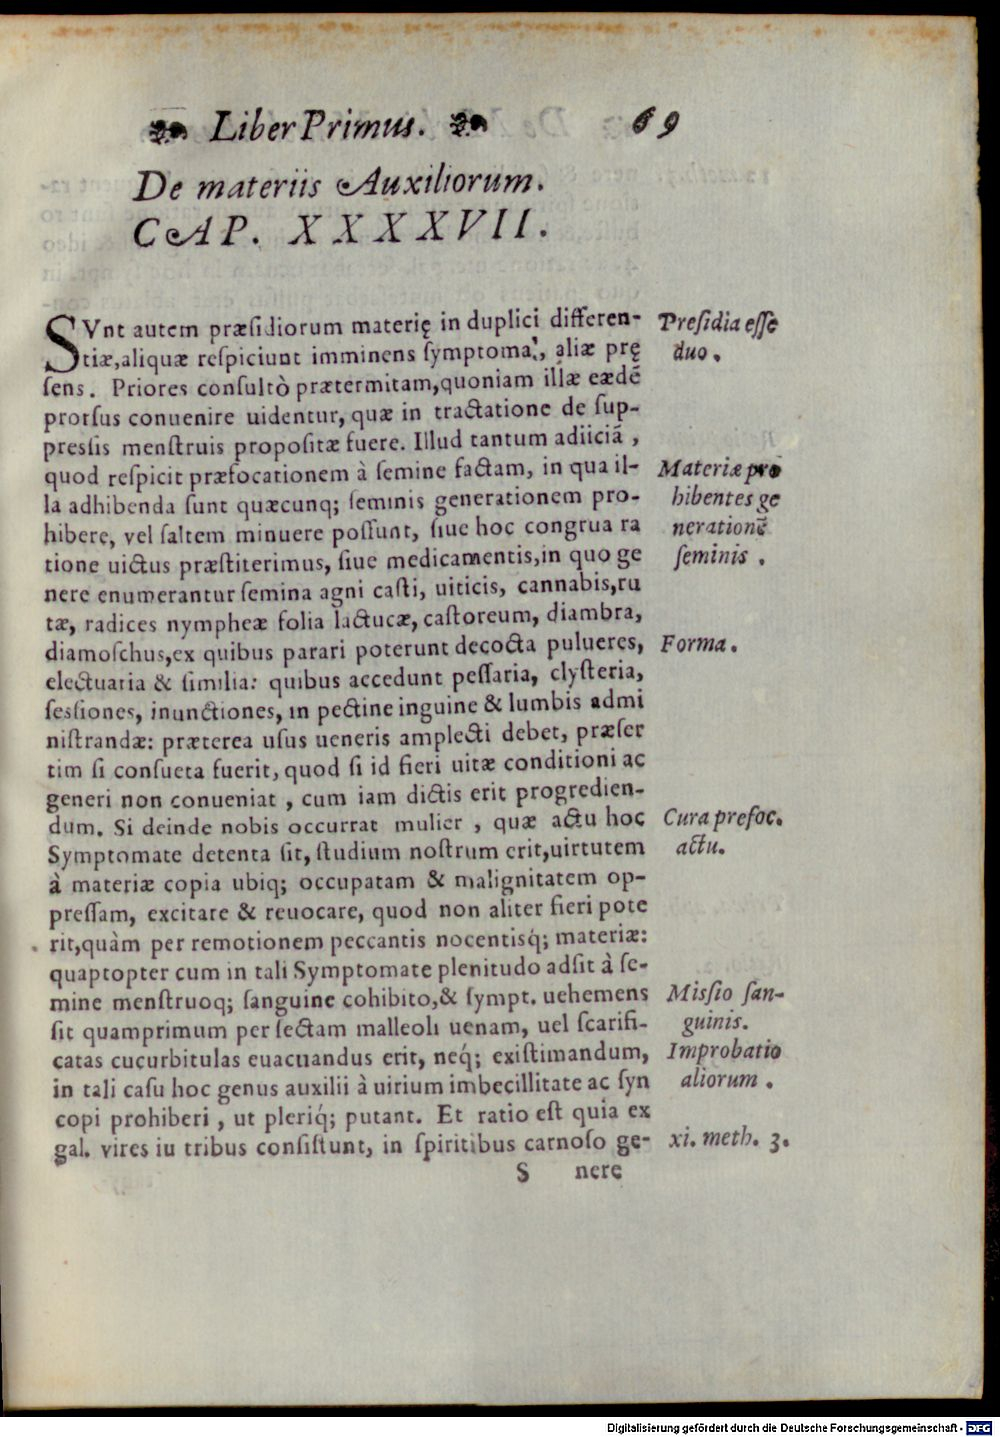 Liber Primus. 69
De materiis Auxiliorum.
CAP. XXXXVII.
SVnt autem præsidiorum materię in duplici differen-
tiæ, aliquæ respiciunt imminens symptoma, aliæ prę
sens. Priores consultò prætermitam, quoniam illæ eædē
prorsus conuenire uidentur, quæ in tractatione de sup-
pressis menstruis propositæ fuere. Illud tantum adiiciā,
quod respicit præfocationem à semine factam, in qua il-
la adhibenda sunt quæcunq; seminis generationem pro-
hibere, vel saltem minuere possunt, siue hoc congrua ra
tione uictus præstiterimus, siue medicamentis, in quo ge
nere enumerantur semina agni casti, uiticis, cannabis, ru
tæ, radices nympheæ folia lactucæ, castoreum, diambra,
diamoschus, ex quibus parari poterunt decocta pulueres,
electuaria & similia: quibus accedunt pessaria, clysteria,
sessiones, inunctiones, in pectine inguine & lumbis admi
nistrandæ: præterea usus ueneris amplecti debet, præser
tim si consueta fuerit, quod si id fieri uitæ conditioni ac
generi non conueniat, cum iam dictis erit progredien-
dum. Si deinde nobis occurrat mulier, quæ actu hoc
Symptomate detenta sit, studium nostrum erit, uirtutem
à materiæ copia ubiq; occupatam & malignitatem op-
pressam, excitare & reuocare, quod non aliter fieri pote
rit, quàm per remotionem peccantis nocentisq́; materiæ:
quaptopter cum in tali Symptomate plenitudo adsit à se-
mine menstruoq; sanguine cohibito, & sympt. uehemens
sit quamprimum per sectam malleoli uenam, uel scarifi-
catas cucurbitulas euacuandus erit, neq́; existimandum,
in tali casu hoc genus auxilii à uirium imbecillitate ac syn
copi prohiberi, ut pleriq́; putant. Et ratio est quia ex
gal. vires iu tribus consistunt, in spiritibus carnoso ge-
S nere
Presidia esse
duo.
Materiæ pro
hibentes ge
nerationē
seminis.
Forma.
Cura prefoc.
actu.
Missio san-
guinis.
Improbatio
aliorum.
xi. meth. 3.
Digitalisierung gefördert durch die Deutsche Forschungsgemeinschaft - DFG